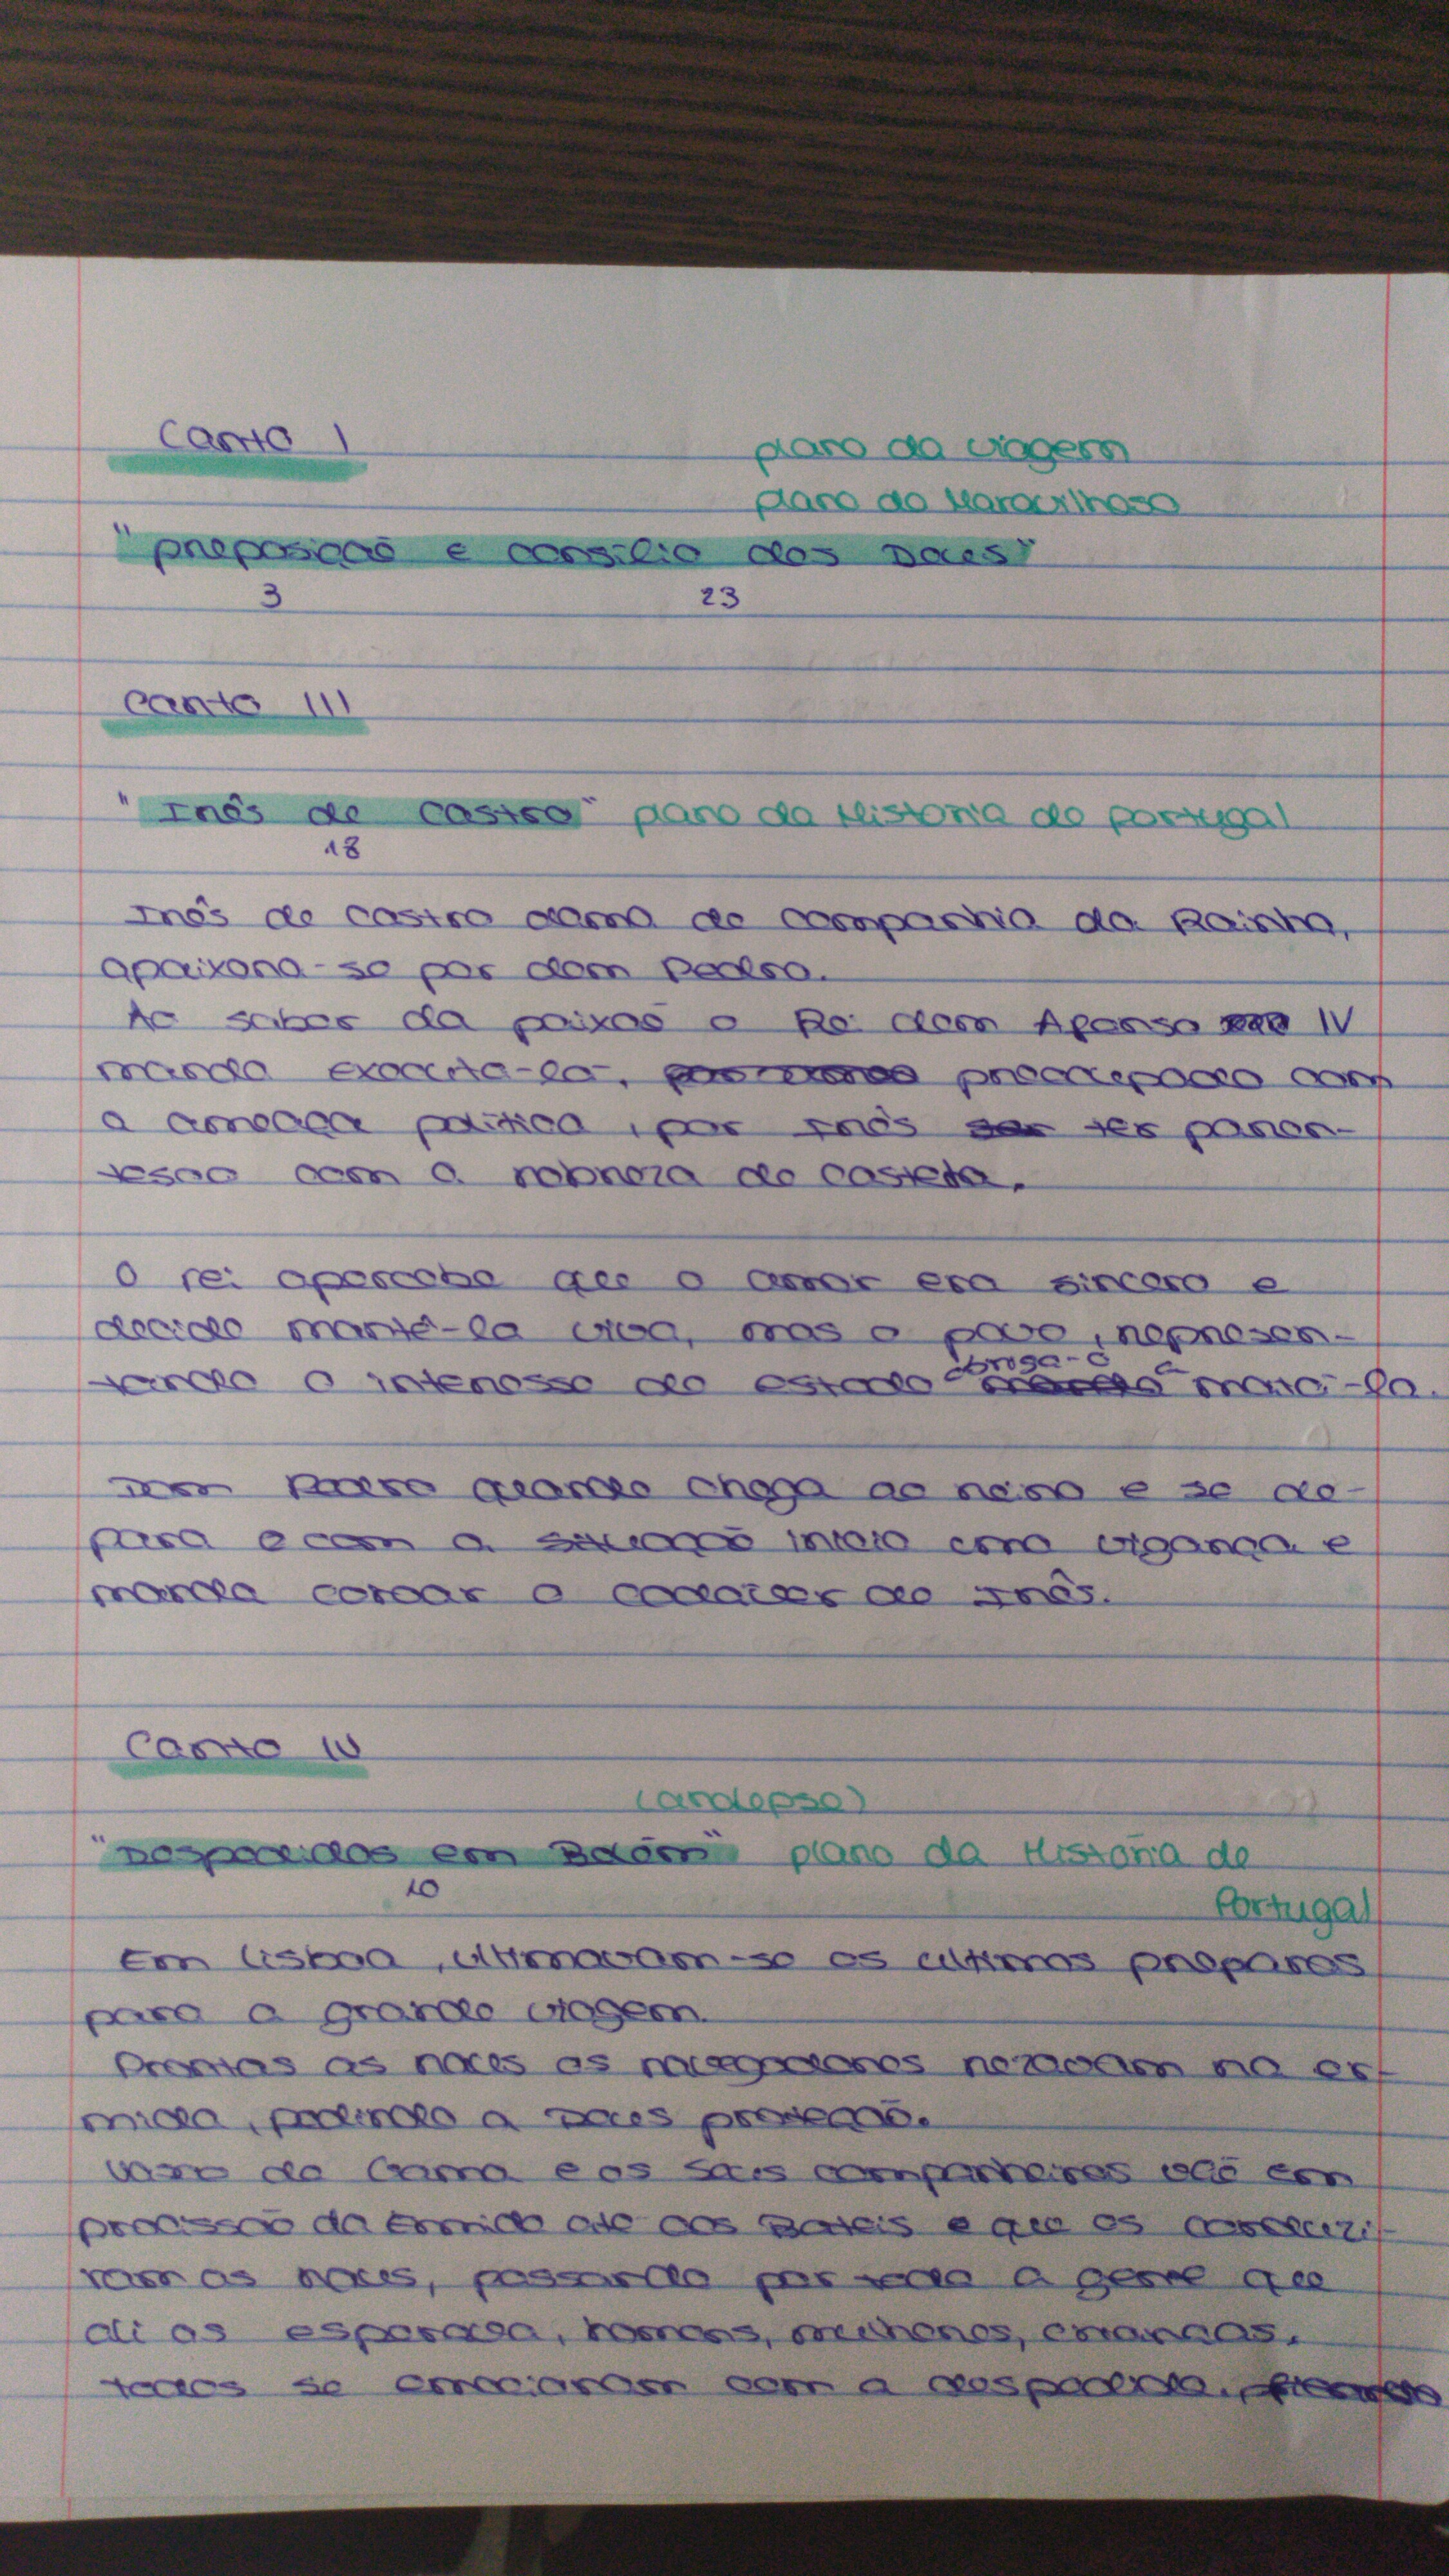 Canto I
plano da viagem
plano do Maravilhoso
"preposição e consilio dos Deuses"
3 23
Canto III
"Inês de Castro" plano da Historia de portugal
18
Inês de Castro dama de companhia da Rainha,
apaixona-se por dom Pedro.
Ao saber da paixão o Rei dom Afonso IV
manda executa-la, preocupado com
a ameaça politica, por Inês ter paren-
tesco com a nobreza de castela.
O rei apercebe que o amor era sincero e
decide mantê-la viva, mas o povo, represen-
tando o interesse do estado obriga-o a matá-la.
Dom Pedro quando chega ao reino e se de-
para com a situação inicia uma vigança e
manda coroar o cadáver de Inês.
Canto IV
(analepse)
"Despedidas em Belém" plano da Historia de
10
Portugal
Em Lisboa, ultimavam-se os ultimos preparos
para a grande viagem.
Prontas as naues os navegadores rezavam na er-
mida, pedindo a Deus proteção.
Vasco da Gama e os seus companheiros vão em
procissão da Ermida ate aos Bateis e que os conduzi-
ram as naues, passando por toda a gente que
ali os esperava, homens, mulheres, crianças.
todos se emocionam com a despedida.